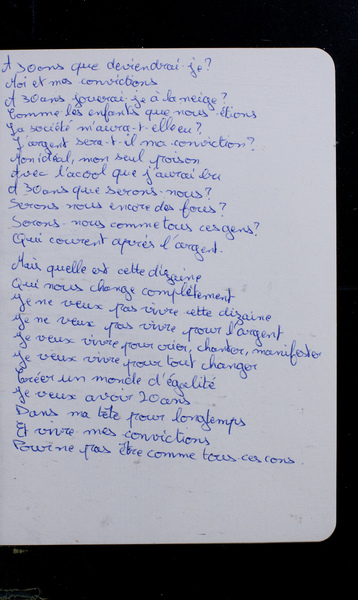 A 30ans que deviendrai-je?
Moi et mes convictions
A 30ans jouerai-je à la neige?
Comme les enfants que nous étions
La société m'aura-t-elle eu?
L'argent sera-t-il ma conviction?
Mon idéal, mon seul poison
Avec l'acool que j'aurai bu
A 30ans que serons-nous?
Serons nous encore des fous?
Serons-nous comme tous ces gens?
Qui courent après l'argent.
Mais quelle est cette dizaine
Qui nous change complètement
Je ne veux pas vivre cette dizaine
Je ne veux pas vivre pour l'argent
Je veux vivre pour crier, chanter, manifester
Je veux vivre pour tout changer
Créer un monde d'égalité
Je veux avoir 20ans
Dans ma tête pour longtemps
Et vivre mes convictions
Pour ne pas être comme tous ces cons.